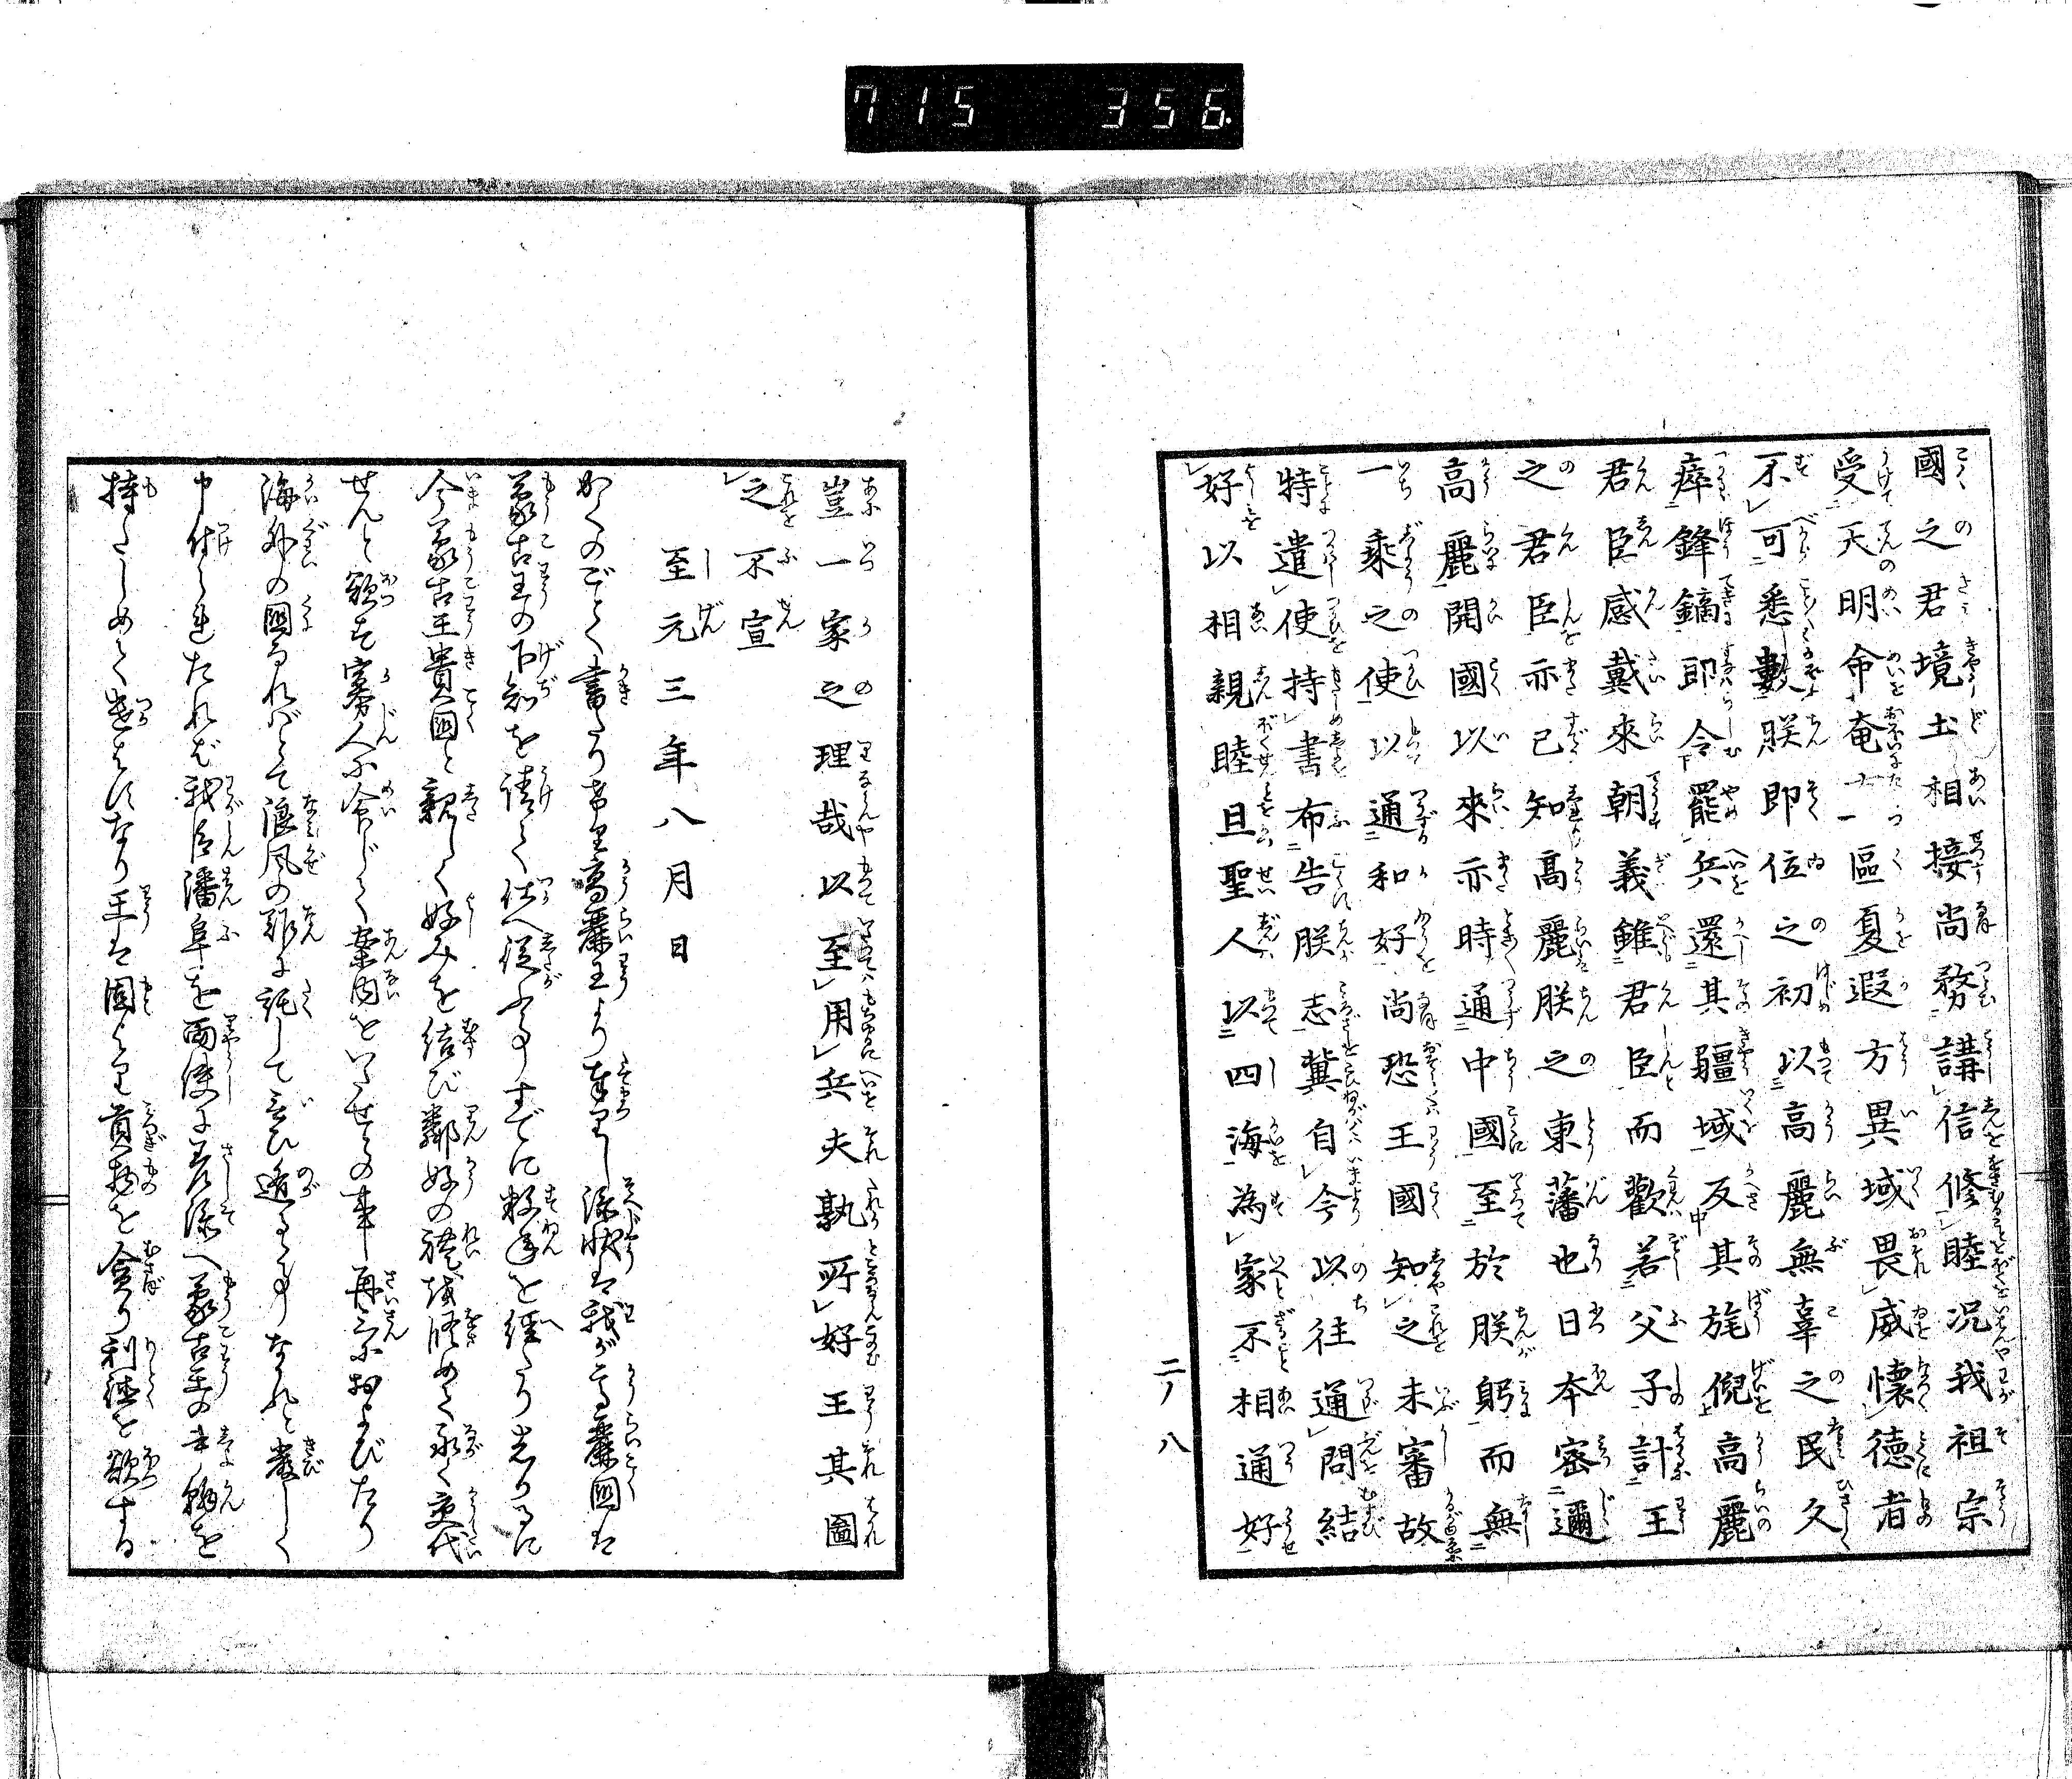 715 356
國之君境土相接尚務講信修睦况我祖宗
受天明命奄一區夏遐方異域畏威懷徳者
不可悉數朕即位之初以高麗無辜之民久
瘁鋒鏑即令罷兵還其疆域反其旄倪高麗
君臣感戴來朝義雖君臣而歡若父子計王
之君臣亦已知高麗朕之東藩也日本密邇
高麗開國以來亦時通中國至於朕躬而無
一乘之使以通和好尚恐王國知之未審故
特遣使持書布告朕志冀自今以往通問結
好以相親睦且聖人以四海為家不相通好
二ノ八
豈一家之理哉以至用兵夫孰所好王其圖
之不宣
至元三年八月日
かくのごとく書たり亦高麗王より奉りし添状は我が高麗國は
蒙古王の下知を請て仕へ従ふ事すでに数年を經たり然りるに
今蒙古王貴國と親しく好みを結び鄰好の礼を脩めて永く交代
せんと欲す寡人に命じて案内をいたせとの事再三におよびたり
海外の國なればとて浪風の難に託して言ひ遁るゝ事なかれと嚴しく
申付られたれば我臣潘阜を両使に差添へ蒙古王の書翰を
持たしめて遣はすなり王は固より貢物を貪り利徳を欲する